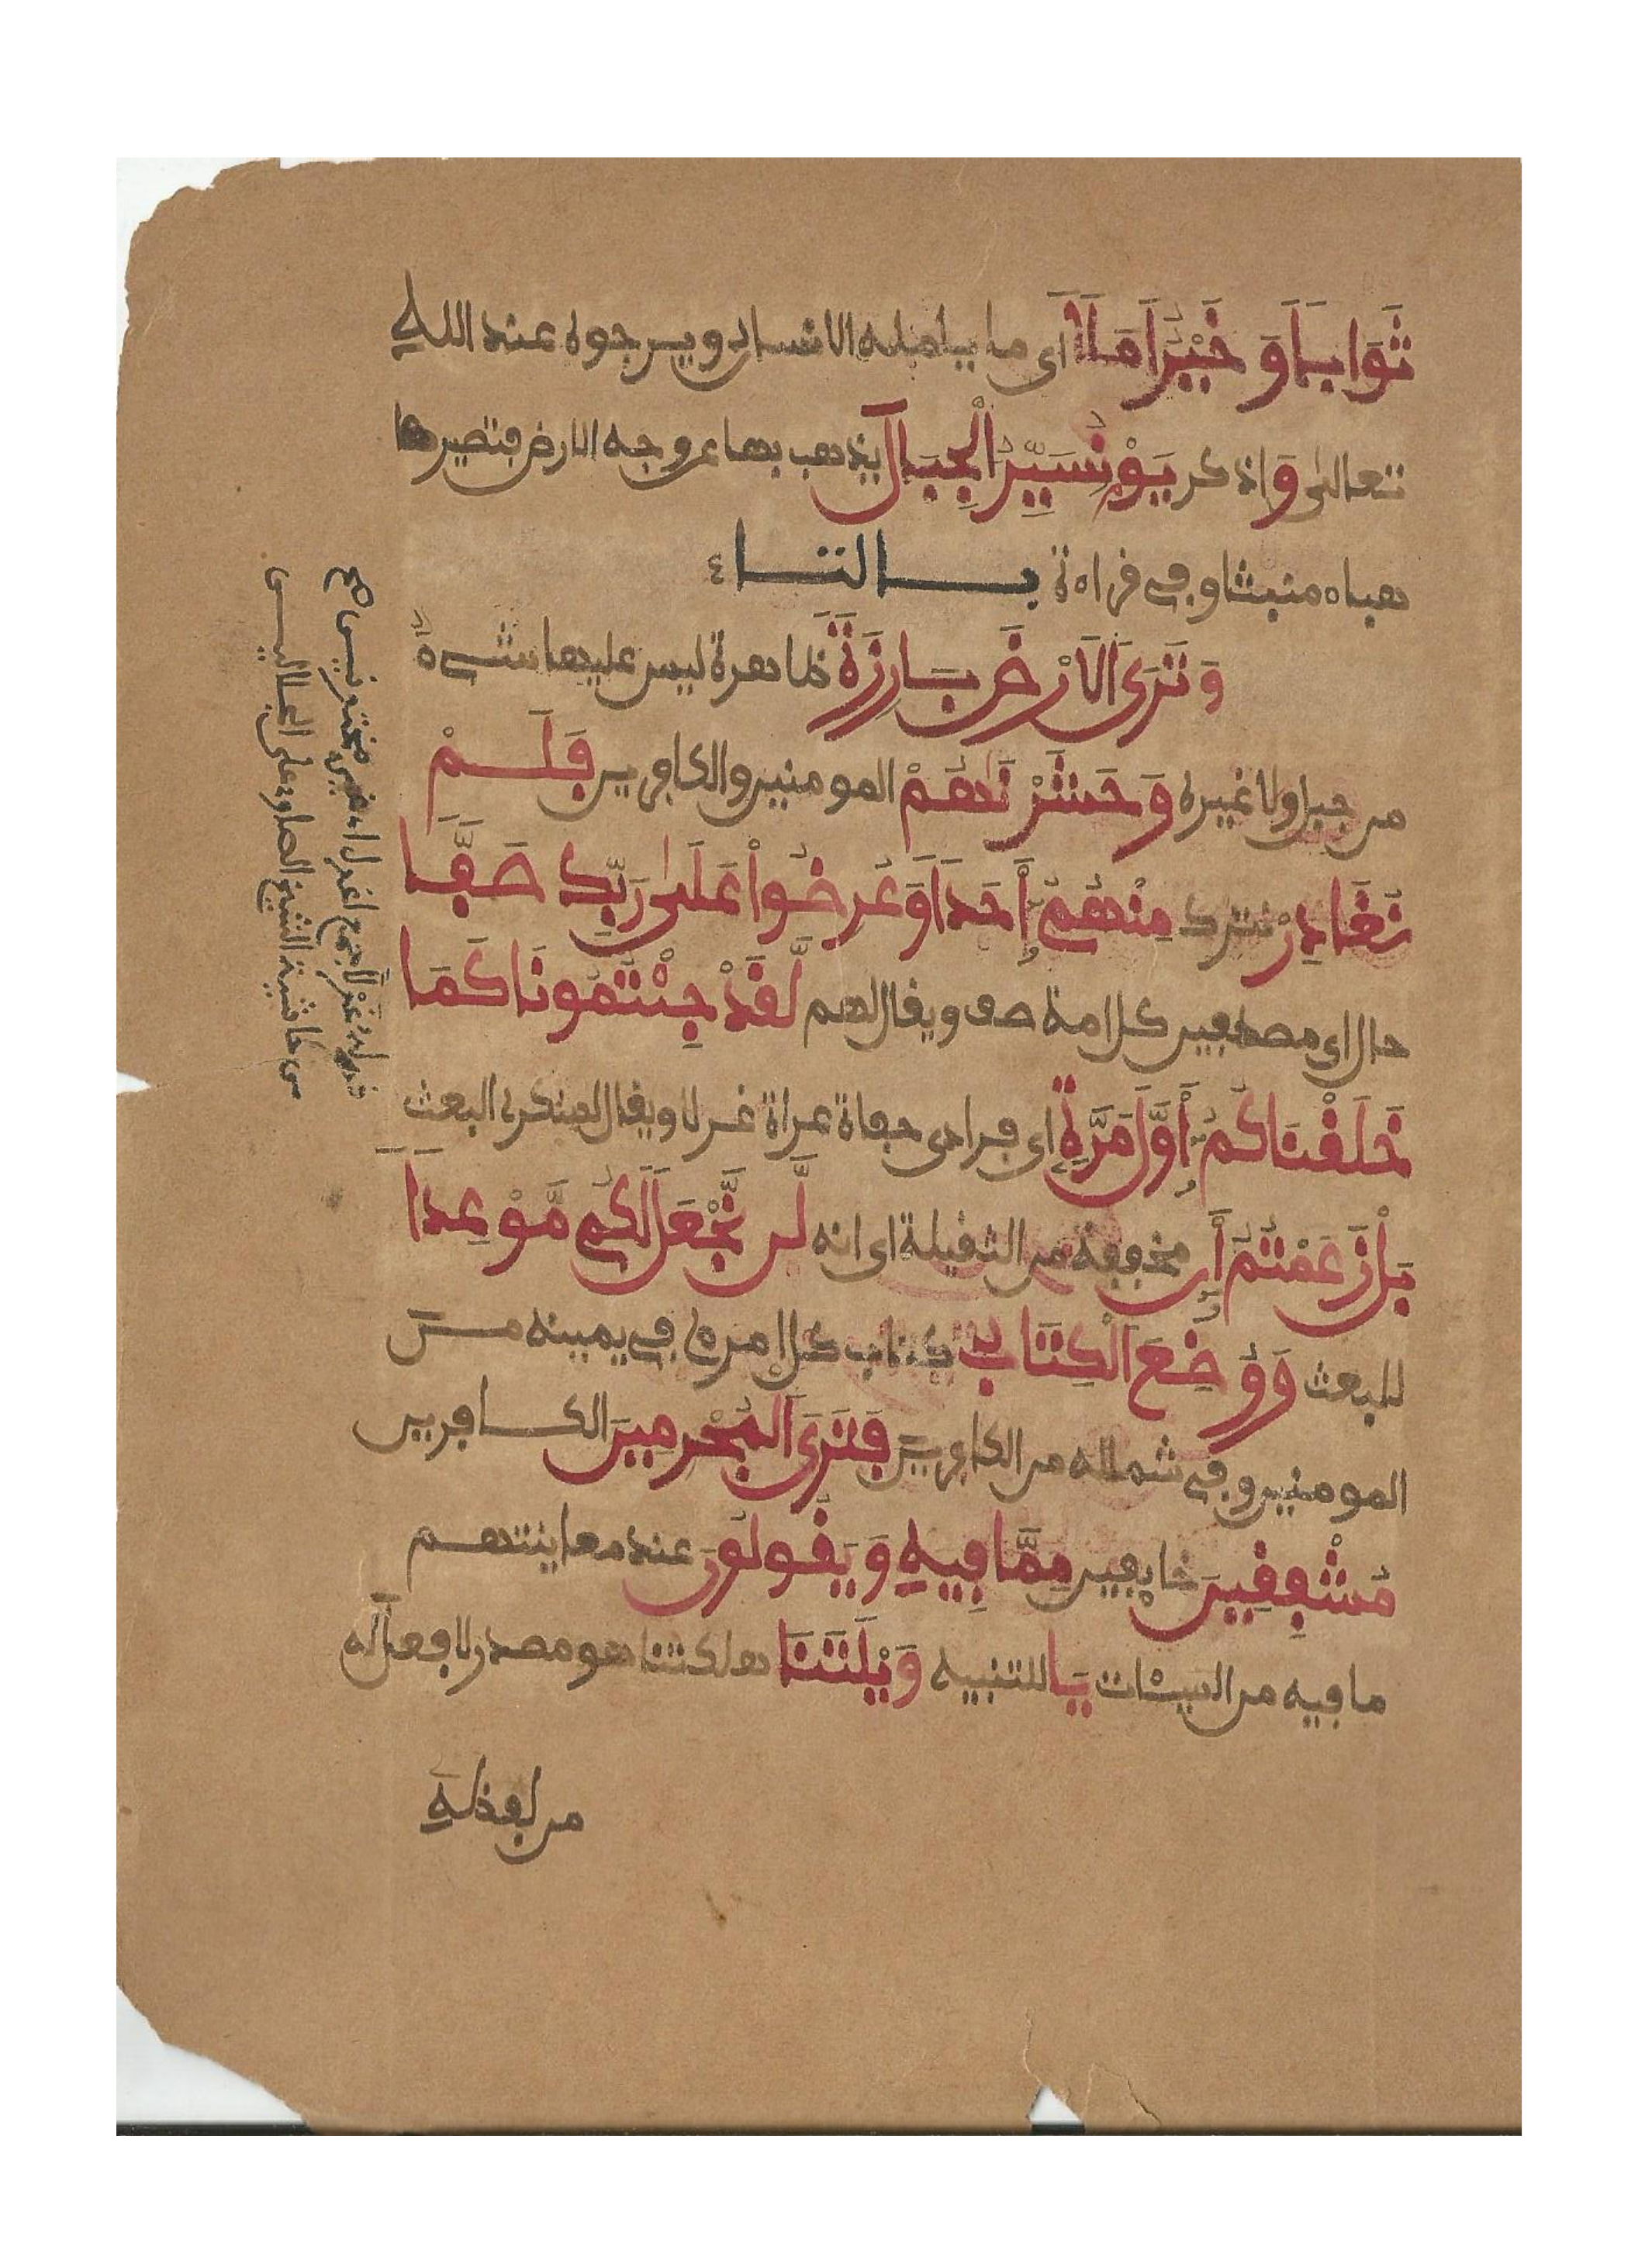 ثَوَاباً وَ خَيْرٌ اَمَلاً اى ما يامله الانسان ويرجوه عند اللهِ
تعالىٰ وَاذكر يَوْمَ نُسَيِّرُ الْجِبَالَ يذهب بها عن وجه الارض فتصير ها
هباء منبثا وفى قراءة بالتاء
وَتَرَى الَارْضَ بَارِزَةً ظاهرة ليس عليها شىء
من جبل ولا غيره وَحَشَرْنَٰهُمْ المومنين والكافرين فَلَمْ
نُغَادِرْ نترك مِنْهُمُ أَحَداً وَعُرِضُواْ عَلَىٰ رَبِّكَ صَفًّا
حال اى مصطفين كل امة صف ويقال لهم لَّقَدْ جِئْتُمُونَا كَمَا
خَلَقْنَاكُمُ أَوَّلَ مَرَّةٍ اى فرادى حفاة عراة غرلا ويقال لمنكرى البعث
بَلْ زَعَمْتُمُ أَن مخففة من الثقيلة اى انه لَّن نَّجْعَلَ لَكُم مَّوْعِداً
للبعث وَوُضِعَ الْكِتَابُ كتاب كل امرئ فى يمينه من
المومنين وفى شماله من الكافرين فَتَرَى الْمُجْرِمِينَ الكافرين
مُشْفِقِينَ خايفين مِمَّا فِيهِ وَيَقُولُونَ عند معاينتهم
ما فيه من السيئات يَا للتنبيه وَيْلَتَنَا هلكتنا هو مصدر لا فعل له
من لفظهِ
قوله غرلا جمع اغرل اى غير مختونين صح
من حاشية الشيخ الصاوى على الجلالين